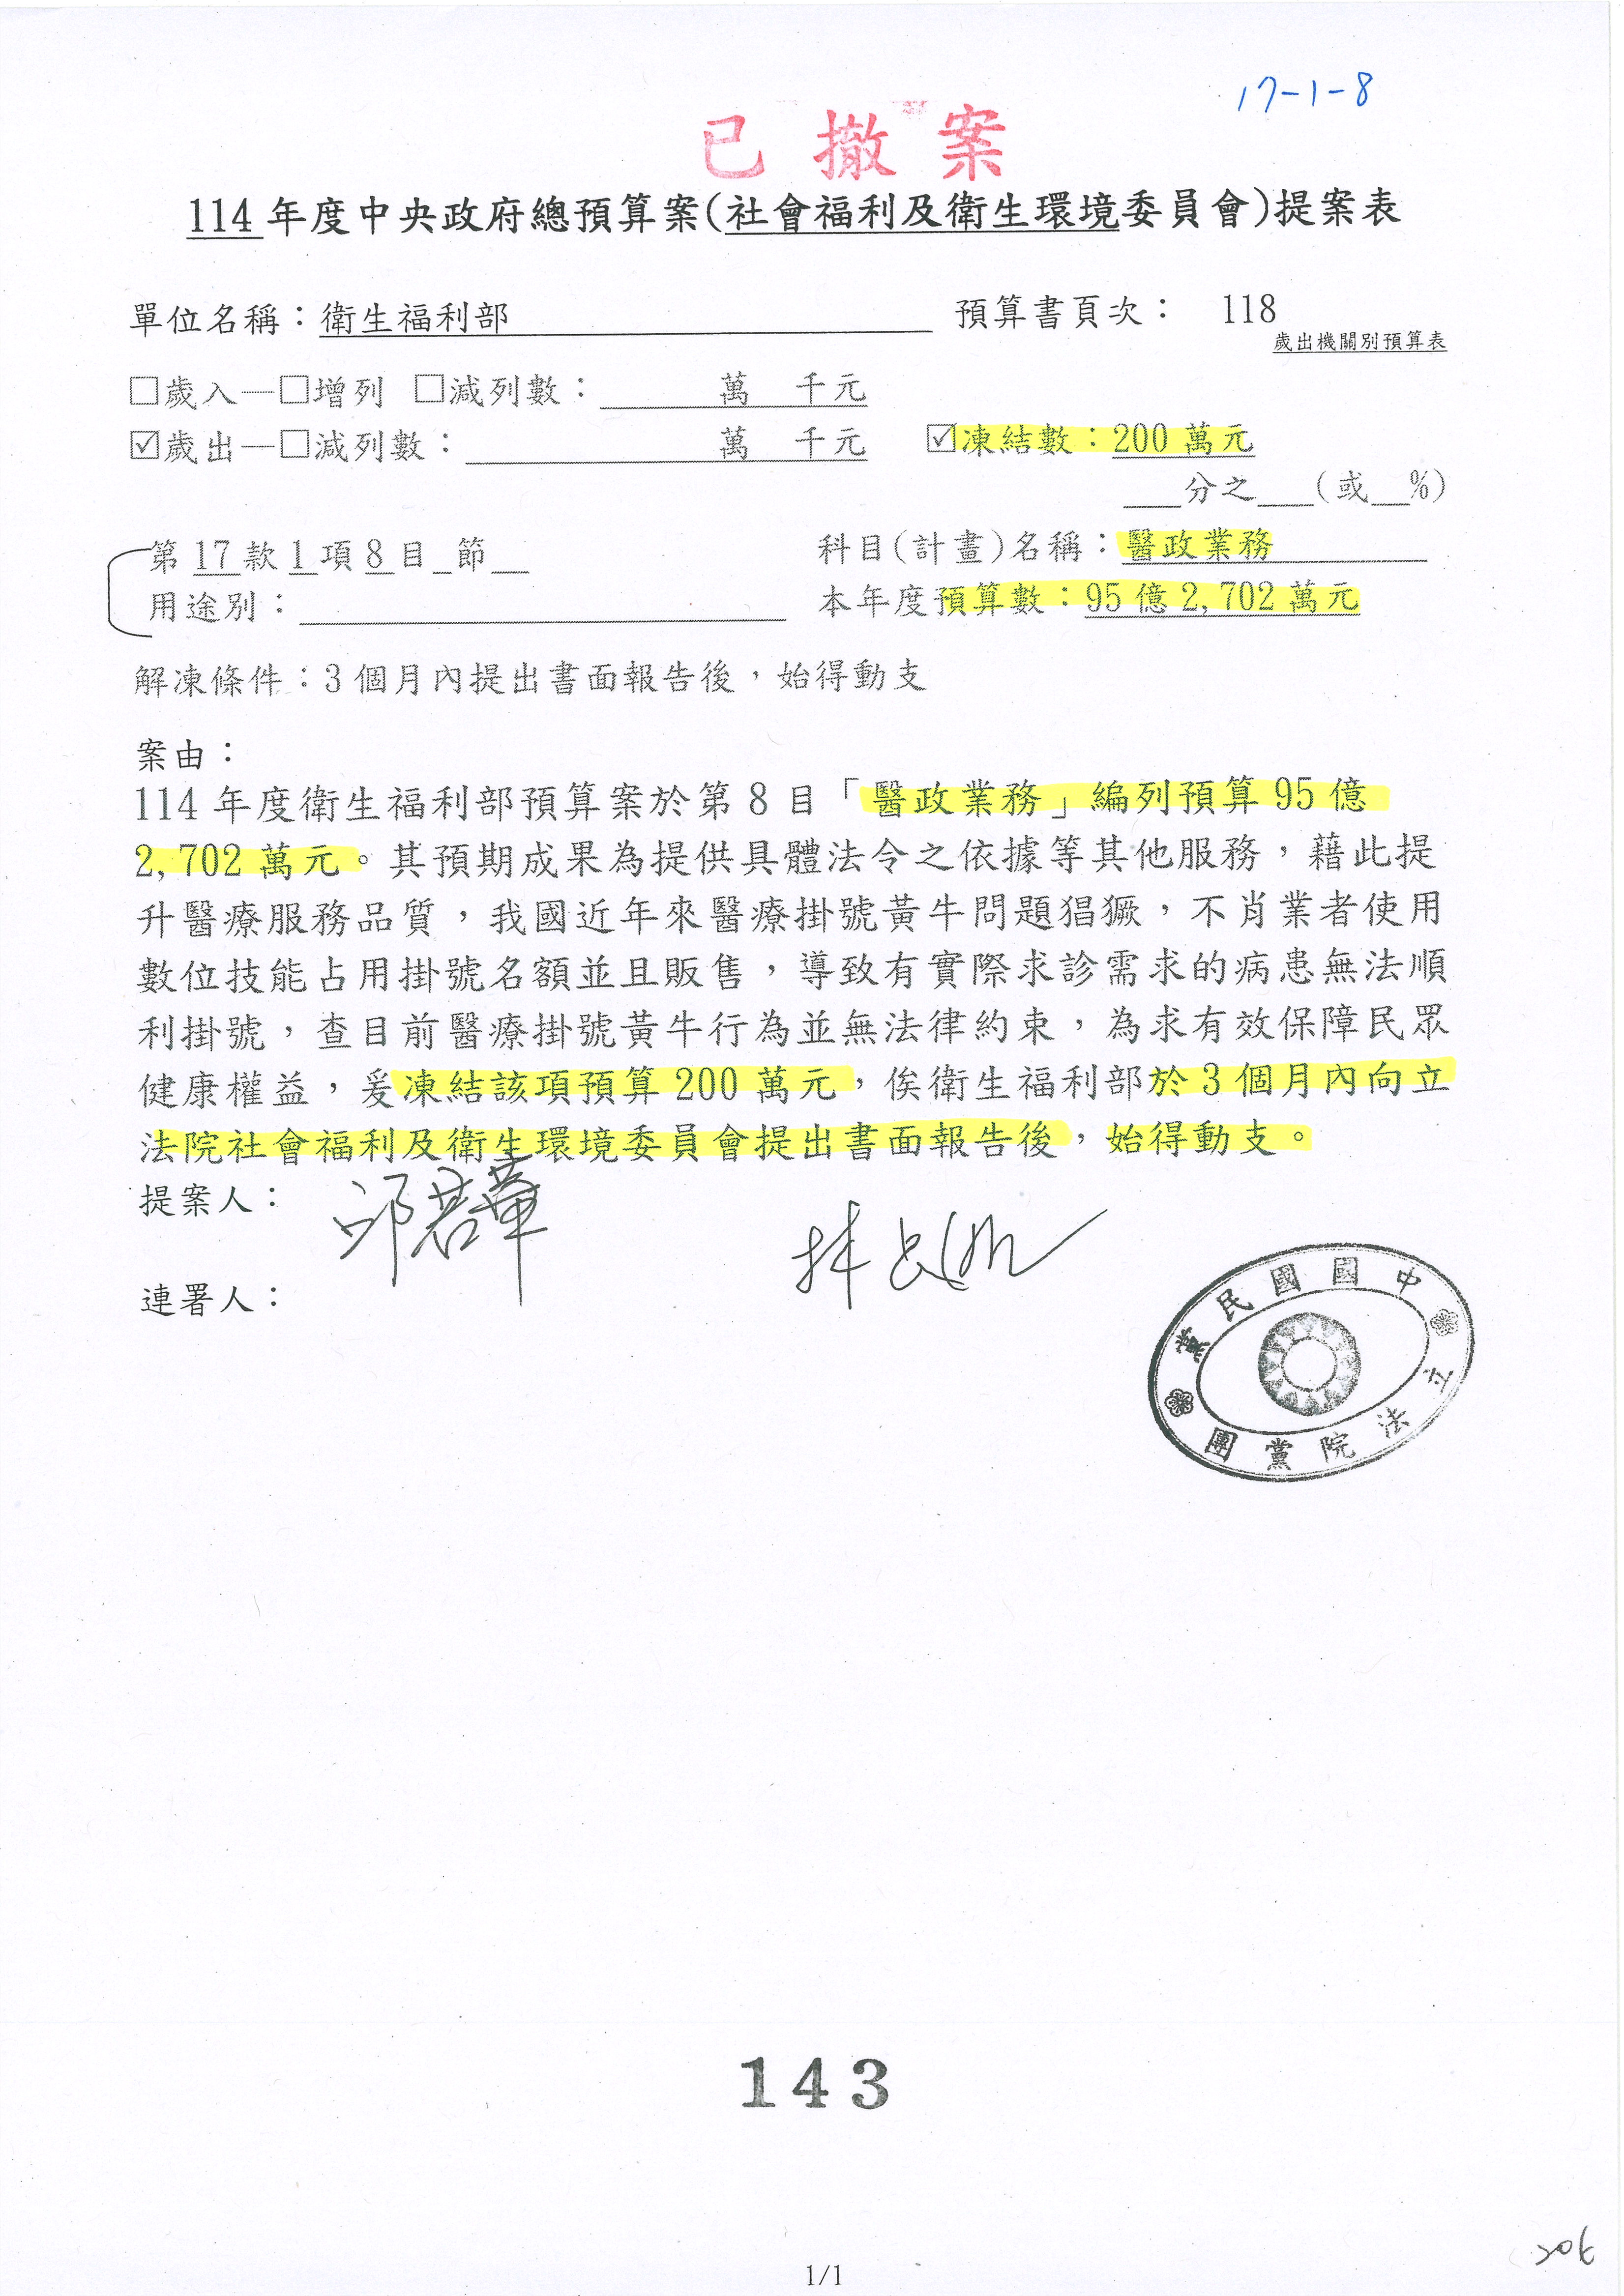 17-1-8
已撤案
114年度中央政府總預算案(社會福利及衛生環境委員會)提案表
單位名稱：衛生福利部 預算書頁次： 118
歲出機關別預算表
□歲入—□增列 □減列數：　　　萬　千元
☑歲出—□減列數：　　　萬　千元 ☑凍結數：200萬元
＿分之＿(或＿%)
第17款1項8目_節_ 科目(計畫)名稱：醫政業務
用途別： 本年度預算數：95億2,702萬元
解凍條件：3個月內提出書面報告後，始得動支
案由：
114年度衛生福利部預算案於第8目「醫政業務」編列預算95億
2,702萬元。其預期成果為提供具體法令之依據等其他服務，藉此提
升醫療服務品質，我國近年來醫療掛號黃牛問題猖獗，不肖業者使用
數位技能占用掛號名額並且販售，導致有實際求診需求的病患無法順
利掛號，查目前醫療掛號黃牛行為並無法律約束，為求有效保障民眾
健康權益，爰凍結該項預算200萬元，俟衛生福利部於3個月內向立
法院社會福利及衛生環境委員會提出書面報告後，始得動支。
提案人： 邱若華
連署人：
中國國民黨
立法院黨團
143
1/1